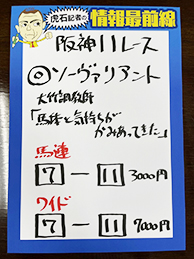 虎石記者の
情報最前線
阪神11レース
◎ソーヴァリアント
大竹調教師
「馬体と気持ちが
かみあってきた」
馬連
7 ー 11 3000円
ワイド
7 ー 11 7000円